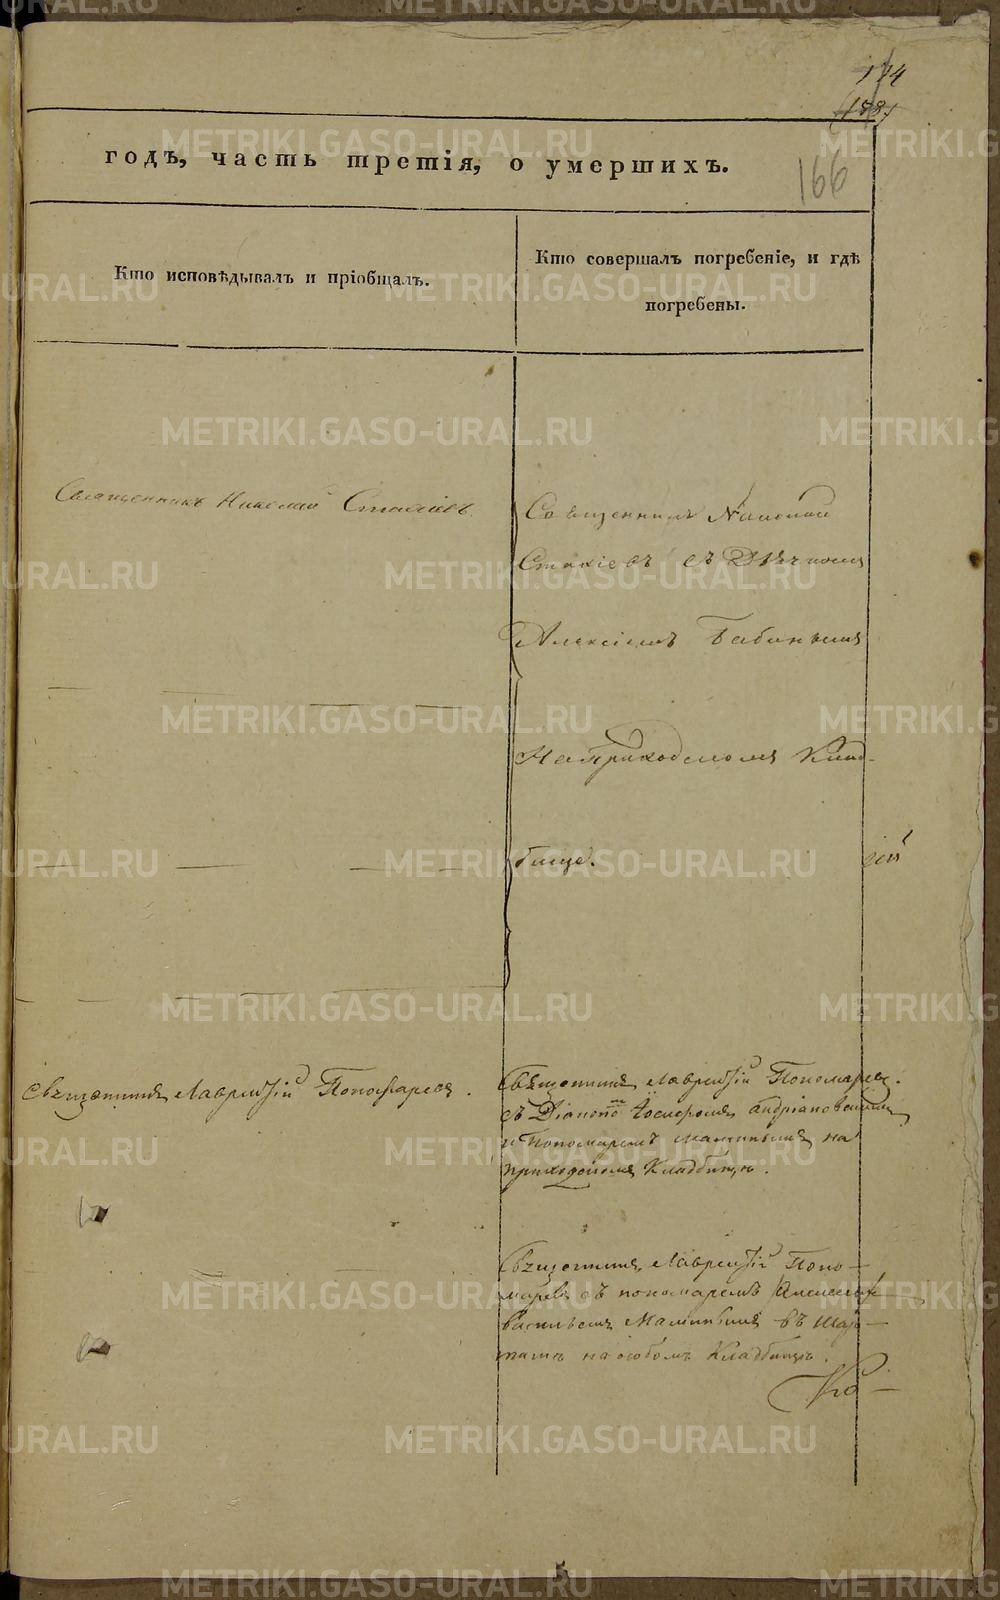 174
(158)
166
годъ, часть третія, о умершихъ.
Кто исповѣдывалъ и пріобщалъ.
Кто совершалъ погребеніе, и гдѣ
погребены.
Священникъ Николай Стахіевъ.
Священникъ Николай
Стахіевъ съ Дьячкомъ
Алексіемъ Бабинымъ
На Приходскомъ Клад-
бище.
Священникъ Лаврентій Пономаревъ.
Священникъ Лаврентій Пономаревъ.
съ Діакономъ Іосифомъ Андріановымъ
и Пономаремъ Мамины́мъ на
приходскомъ Кладбищѣ.
Священникъ Лаврентій Поно-
маревъ съ пономаремъ
Васильемъ Маминымъ въ Шар-
ташѣ на особомъ Кладбищѣ.
METRIKI.GASO-URAL.RU